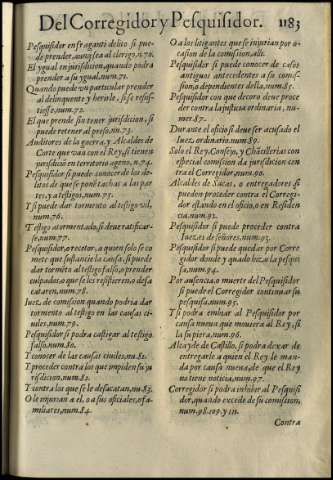 Del Corregidor y Pesquisidor. 1183
Pesquisidor en fraganti delito si pue-
de prender, aunq̃ sea al clerigo, n.70.
El ygual en jurisdicion, quando podra
prender a su ygual, num.71.
Quando puede vn particular prender
al delinquente y herirle, si se resis-
tiesse, num.72.
El que prende sin tener jurisdicion, si
puede retener al preso, nu.73.
Auditores de la guerra, y Alcaldes de
Corte que van con el Rey, si tienen
jurisdiciõ en territorio ageno, n.74.
Pesquisidor si puede conocer de los de-
litos de que se pone tachas a las par-
tes, y a testigos, num.75.
Y si puede dar tormento al testigo vil,
num.76.
Testigo atormentado, si deue ratificar-
se, num.77.
Pesquisidor, o retor, a quien solo se co
mete que sustancie la causa, si puede
dar tormẽto al testigo falso, o prender
culpados, o que se les resistieren, o desa
cataren, num.78.
Iuez de comission quando podria dar
tormento al testigo en las causas ci-
uiles, num.79.
Pesquisidor si podra castigar al testigo
falso, num.80.
Y conocer de las causas ciuiles, nu.81.
Y proceder contra los que impiden su ju
risdicion, num.82.
Y contra los que se le desacatan, nu.83.
O le injurian a el, o a sus oficiales, o fa-
miliares, num.84.
O a los litigantes que se injurian por o-
casion de la comission, alli.
Pesquisidor si puede conocer de casos
antiguos antecedentes a su comis-
sion, o dependientes della, num.85.
Pesquisidor con que decoro deue proce
der contra la justicia ordinaria, nu-
mer.87.
Durante el oficio si deue ser acusado el
Iuez ordinario, num.89.
Solo el Rey, Consejo, y Chãcillerias con
especial comission dã jurisdicion con-
tra el Corregidor, num.90.
Alcaldes de Sacas, o entregadores si
pueden proceder contra el Corregi-
dor estando en el oficio, o en Residen-
cia, num.92.
Pesquisidor si puede proceder contra
Iuezes de señores, num.93.
Pesquisidor si puede quedar por Corre
gidor donde y quãdo hizo la pesqui
sa, num.94.
Por ausencia, o muerte del Pesquisidor
si puede el Corregidor continuar su
pesquisa, num.95.
Y si podra embiar al Pesquisidor por
causa nueua que mouiera al Rey, si
la supiera, num.96.
Alcayde de Castillo, si podra dexar de
entregarle a quien el Rey le man-
da por causa nueua, de que el Rey
no tiene noticia, num.97.
Corregidor si podra inhibir al Pesquisi
dor, quando excede de su comission,
num.98.109. y 111.
Contra